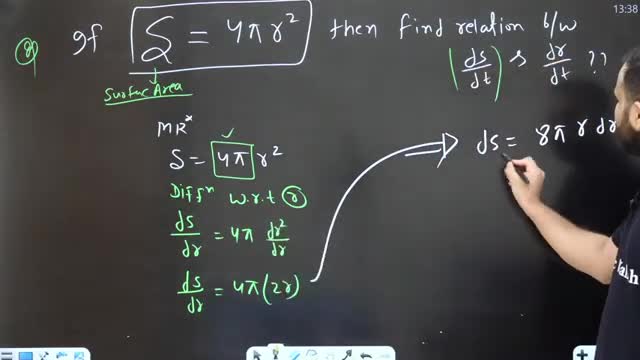 13:38
Q) If S = 4πr² then find relation b/w
(ds/dt) & dr/dt ??
Surface Area
MR*
S = 4π r²
Diffⁿ w.r.t (r)
ds/dr = 4π dr²/dr
ds/dr = 4π(2r)
ds = 8π r dr